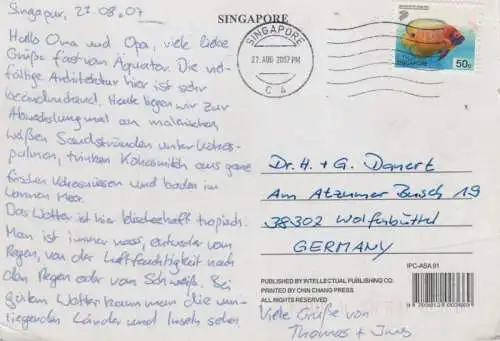 Singapur, 27.08.07
Hallo Oma und Opa, viele liebe
Grüße fast vom Äquator. Die viel-
fältige Architektur hier ist sehr
beeindruckend. Heute liegen wir zur
Abwechslung mal an malerischen
weißen Sandstränden unter Kokos-
palmen, trinken Kokosmilch aus ganz
frischen Kokosnüssen und baden im
warmen Meer.
Das Wetter ist hier tropisch.
Man ist immer nass, entweder vom
Regen, von der Luftfeuchtigkeit nach
dem Regen oder vom Schweiß. Bei
gutem Wetter kann man die um-
liegenden Länder und Inseln sehen
SINGAPORE
SINGAPORE
27 AUG 2007 PM
C 4
50c
Dr. H. + G. Donert
Am Atzumer Busch 19
38302 Wolfenbüttel
GERMANY
IPC-ASA 91
PUBLISHED BY INTELLECTUAL PUBLISHING CO.
PRINTED BY CHIN CHANG PRESS
ALL RIGHTS RESERVED
Viele Grüße von
Thomas + Ines